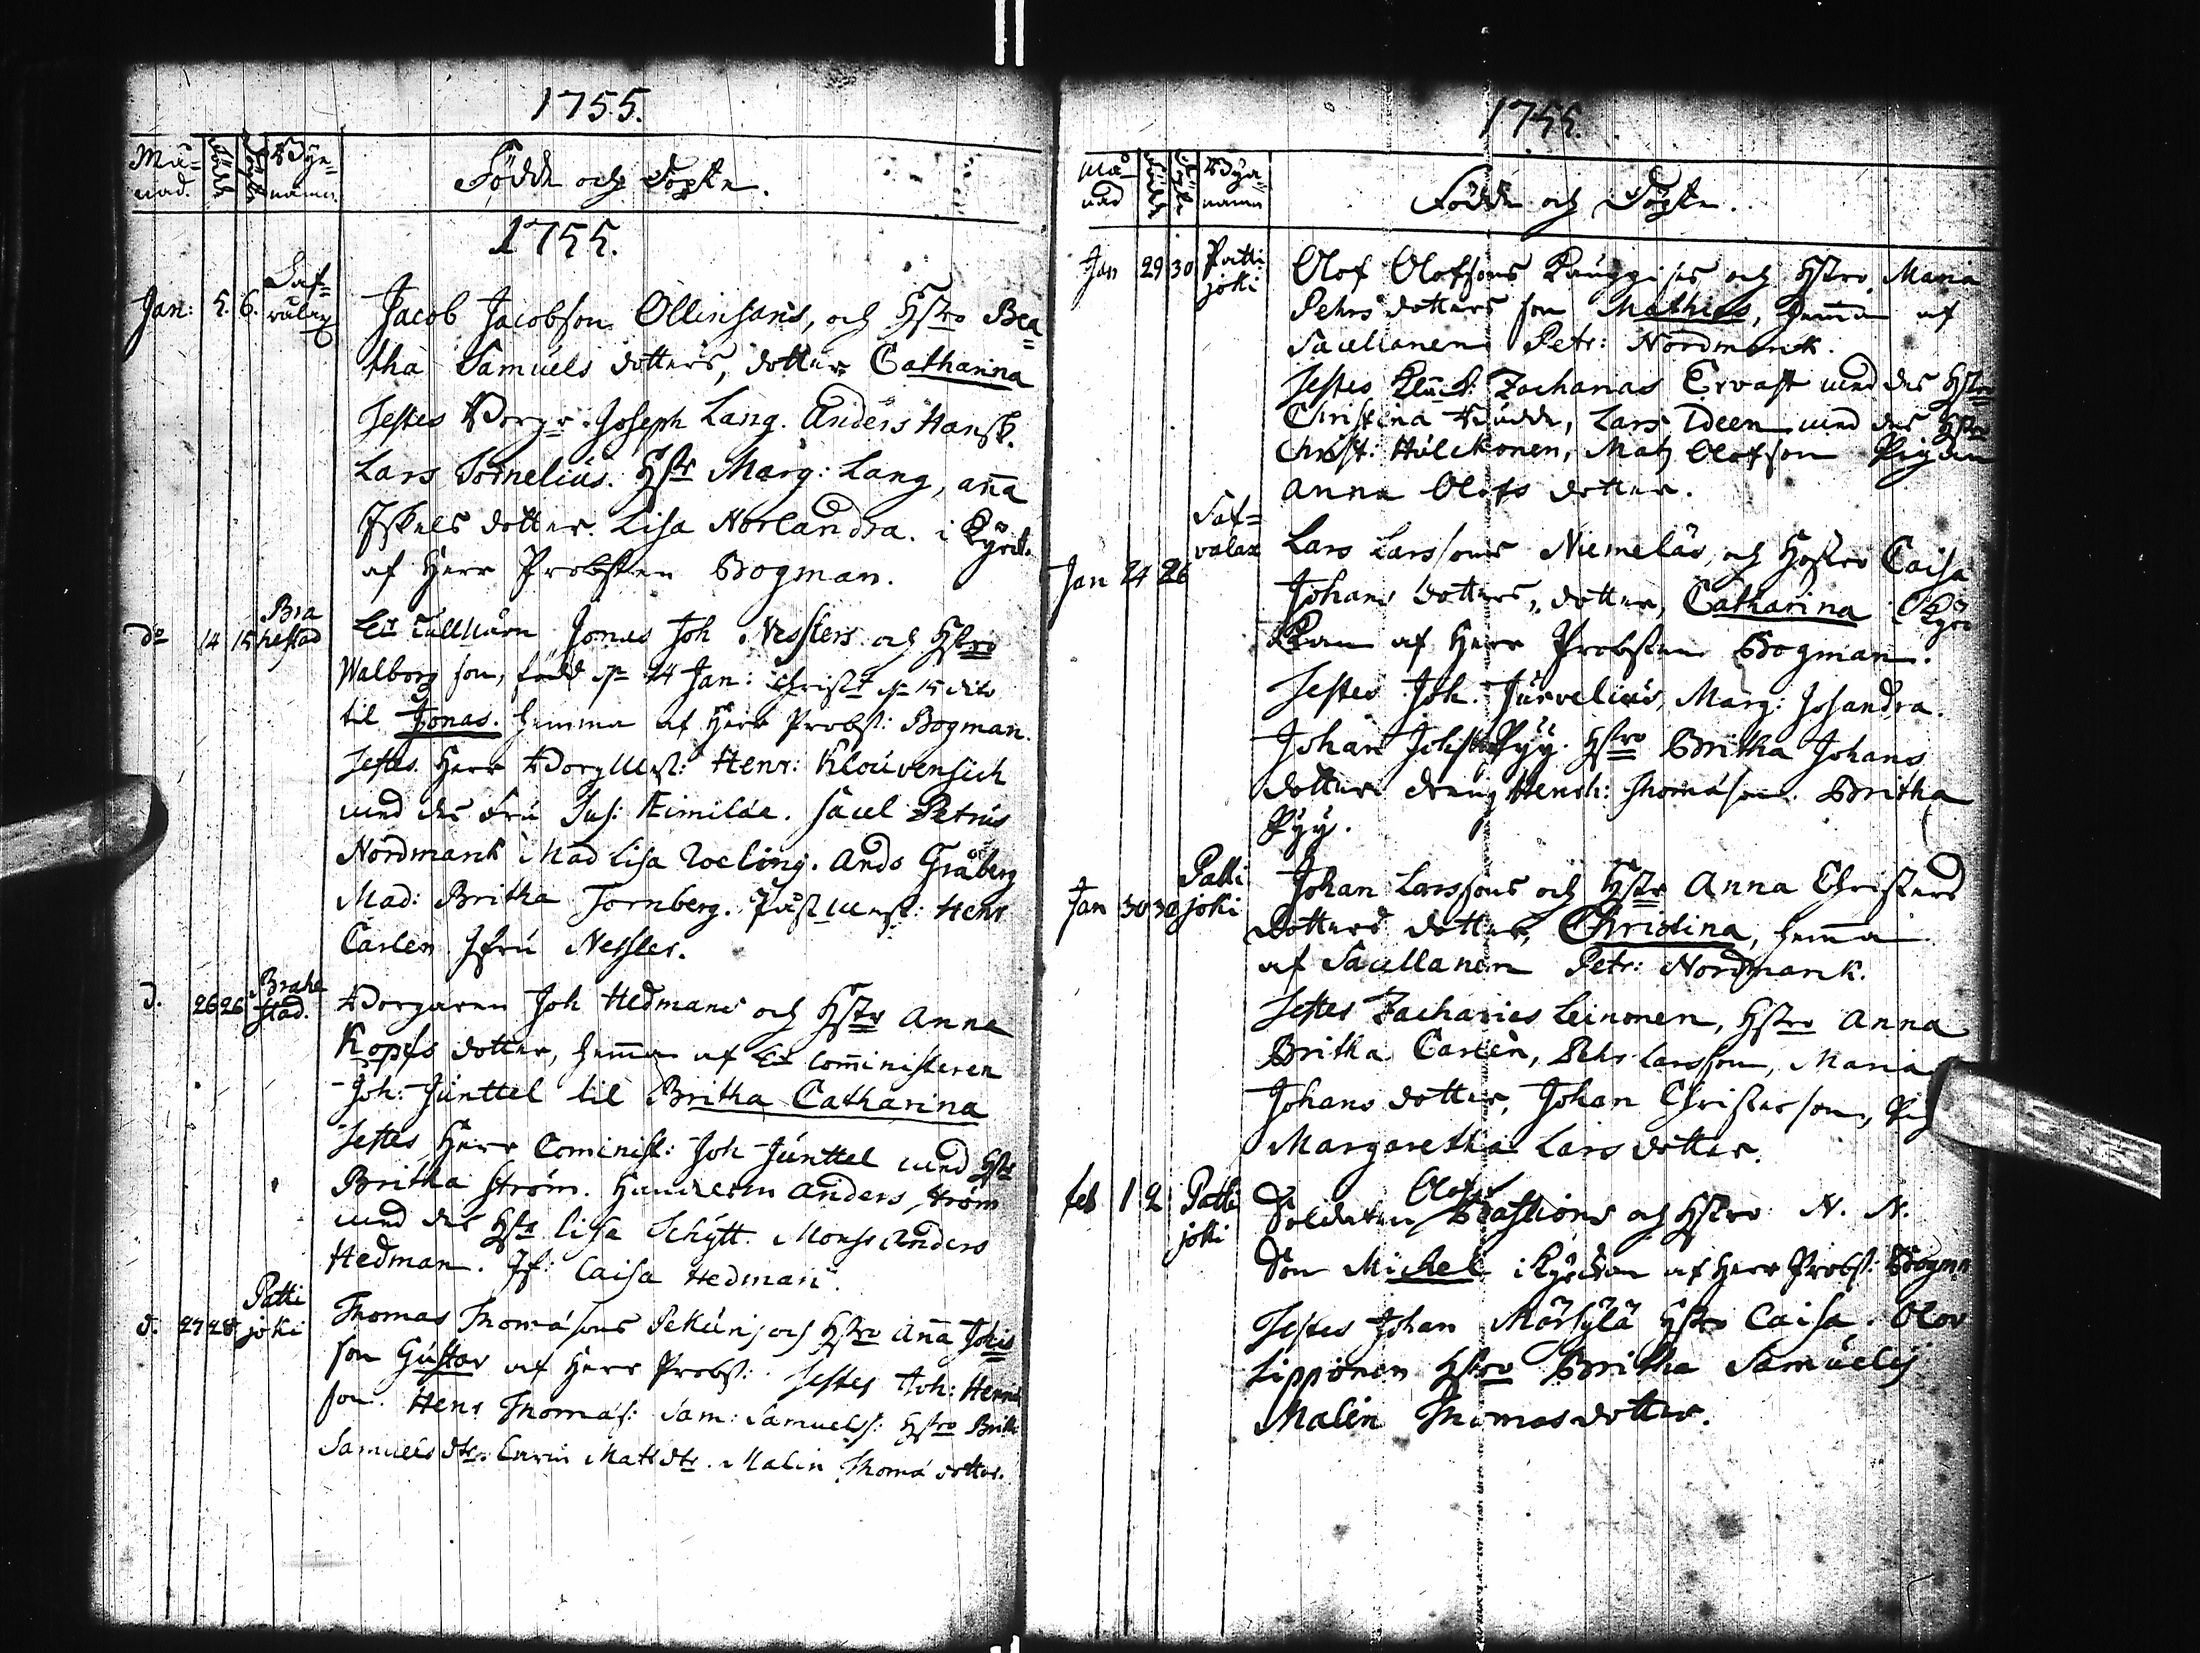 1755.
Må=
nad.
Födde
Döpte
Bÿe=
namn.
Födde och Döpte.
1755.
Jan: 5. 6. Saf=
wulax
Jacob Jacobson Ollinsaris, och Hstro Bea=
tha Samuels dotters, dotter Catharina
Testes Borg: Joseph Lang. Anders Hansk.
Lars Tornelius. Hstr Marg: Lang, Aña
Eskels dotter. Lisa Norlandra. i Kyrck.
af Herr Probsten Bogman.
do 14 15 Bra
hestad
Jonas Joh Nesslers och Hstro
Walborg son, född d 14 Jan: Christ d 15 dito
til Jonas. hemma af Herr Probst: Bogman.
Testes Herr Borgmest: Henr: Klouvensich
med des Fru Sus: Kimilda. Sacel Petrus
Nordmank Mad Lisa Roeling. Ands Gråberg
Mad: Britha Tornberg. Påstmest: Henr
Carlen Jfru Nessler.
d. 26 26 Brahe
stad.
Borgaren Joh Hedmans och Hstr Anna
Kopfs dotter, hem̃a af Comministeren
Joh: Junttel til Britha Catharina
Testes Herr Cominist: Joh Junttel med Hstr
Britha Ström. Anders Ström
med des Hstr Lisa Schÿtt. Mons Anders
Hedman. Jf: Caisa Hedman.
d. 27 28 Patti
joki
Thomas Thomasons Pekuri och Hstro Aña Johs
son Gustav af Herr Probst: Testes Joh: Henrics
son. Henr Thomas: Sam: Samuelss: Hstro Brith
Samuels dtr. Carin Matsdtr. Malin Thoma dotter.
1755.
Må
nad
Födde
Döpte
Bÿa=
namn
Födde och Döpte.
Jan 29 30 Patti
joki
Olof Olofsons Kauppises och Hstro Maria
Pehrs dotters son Mathias, hem̃a af
Sacellanen Petr: Nordmank.
Testes Zacharias Ervast med des Hstro
Christina Budde, Lars Ideen med des Hstro
Christ: Hulckonen, Mats Olofson Pigan
Anna Olofs dotter.
Jan 24 26 Saf=
valax
Lars Larssons Niemeläs, och Hustro Caisa
Johans dotters, dotter, Catharina i Kyrc
kan af Herr Probsten Bogman.
Testes Joh. Jurvelius, Marg: Josandra.
Johan Johss Pyy. Hstro Britha Johans
dotter dreng Henrh: Thomason. Britha
Pyy.
Jan 30 30 Patti
joki
Johan Larssons och Hstr Anna Christers
dotters dotter, Christina, hem̃a
af Sacellanen Petr: Nordmank.
Testes Zacharias Leinonen, Hstro Anna
Britha Carlen, Pehr Larsson, Maria
Johans dotter, Johan Christerson, Pig
Margaretha Lars dotter.
feb 1 2 Patti
joki
Soldaten Olofs Bastions och Hstro N. N.
Son Michel i Kyrckan af Herr Probst: Bogman
Testes Johan Märkylä Hstr Caisa, Olov
Lipponen Hstro Britha Samuels
Malin Thomasdotter.